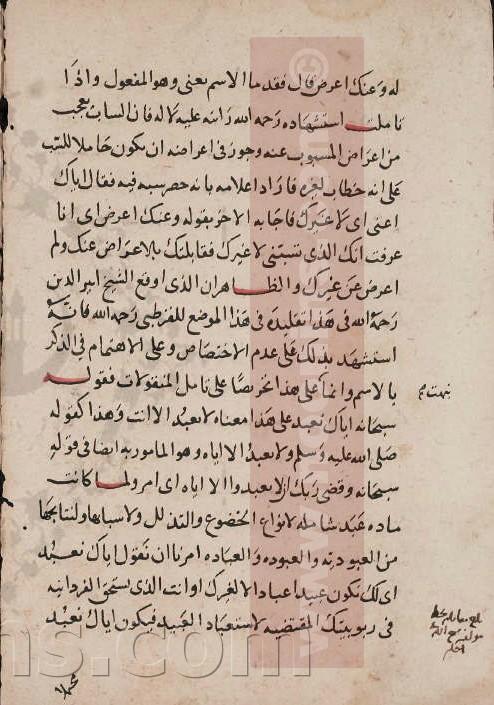 له وعنك اعرض قال فقدما الاسم يعنى وهو المفعول واذا
تاملت استشهاده رحمه الله راسه عليه لا له فان الساب يعجب
من اعراض المسبوب عنه وجوز فى اعراضه ان يكون حاملا للسب
على انه خطاب لغيره فازاد اعلامه بانه حصر سبه فيه فقال اياك
اعنى اى لا غيرك فاجابه الاخر بقوله وعنك اعرض اى انا
عرفت انك الذى تسبنى لا غيرك فقابلتك بالاعراض عنك ولم
اعرض عن غيرك والظاهر ان الذى اوقع الشيخ اثير الدين
رحمه الله فى هذا تقليده فى هذا الموضع للقرطبى رحمه الله فانه
استشهد بذلك على عدم الاختصاص وعلى الاهتمام فى الذكر
بالاسم وانما على هذا تحريضا على تامل المنقولات فقوله
سبحانه اياك نعبد على هذا معناه لا نعبد الا انت وهذا كقوله
صلى الله عليه وسلم ولا نعبد الا اياه وهو المامور به ايضا فى قوله
سبحانه وقضى ربك ان لا تعبدوا الا اياه اى امر ولما كانت
ماده عبد شامله لانواع الخضوع والتذلل ولاسبابها ولنتائجها
من العبوديه والعبوده والعباده امرنا ان نقول اياك نعبد
اى لك نكون عبيدا عبادا لا لغيرك او انت الذى يستحق الفردانيه
فى ربوبيتك المقتضيه لاستعباد العبيد فيكون اياك نعبد
بلغ مقابله بخط
مولفه